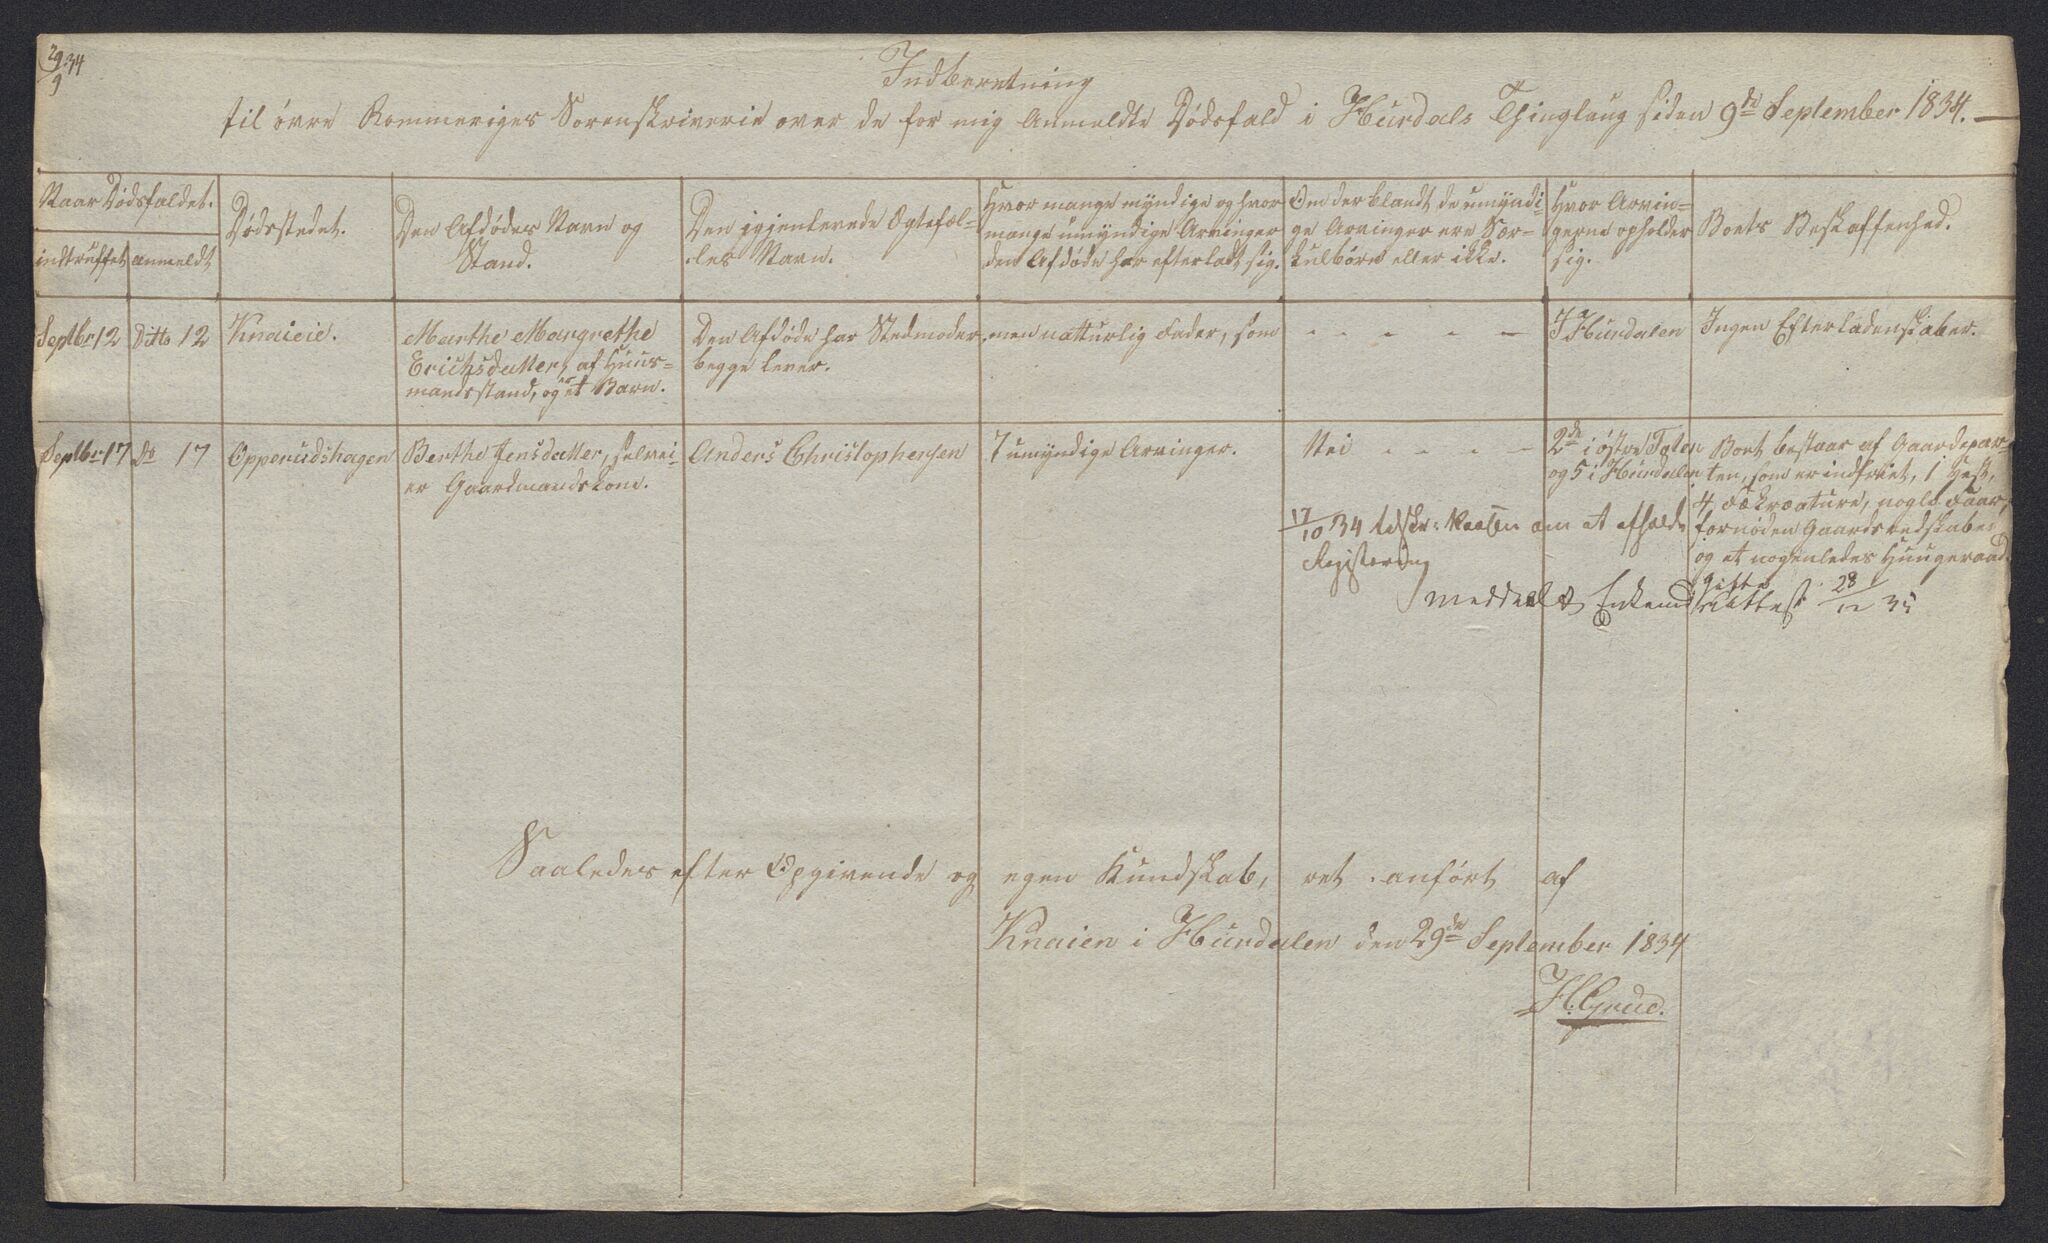 29/9 34
Indberetning
til øvre Rommeriges Sorenskriverie over de for mig Anmeldte Dødsfald i Hurdals Thinglaug siden 9de September 1834.
Naar Dødsfaldet.
indtruffet
anmeldt
Dødsstedet.
Den Afdødes Navn og
Stand.
Den igjenlevende Ægtefæl-
les Navn.
Hvor mange myndige og hvor
mange umyndige Arvinger
den Afdøde har efterladt sig.
Om der blandt de umyndi-
ge Arvinger ere Sær-
kulbørn eller ikke.
Hvor Arvin-
gerne opholder
sig.
Boets Beskaffenhed.
Septbr 12
Ditto 12
Knaieie.
Marthe Margrethe
Erichsdatter, af Huus-
mandsstand, og er et Barn.
Den Afdøde har Stedmoder, men natturlig Fader, som
begge lever.
- - - - -
I Hurdalen
Ingen Efterladenskaber.
Septbr 17
Do 17
Opperudshagen
Berthe Jensdatter, selvei-
er Gaardmandskone.
Anders Christophersen
7 umyndige Arvinger.
Nei - - - -
2de i østre Toten
og 5 i Hurdalen
Boet bestaar af Gaardepar-
ten, som er indfriet, 1 Hest,
4 Fækreature, nogle Faar,
fornøden Gaardsredskaber
og et nogenledes Huusgeraad.
17/10 34 tilskr: om at afholde
Registering
meddeelt Enkemd gifte
attest 28/12 35
Saaledes efter Opgivende og egen Kundskab, ret anført af
Knaien i Hurdalen den 29de September 1834
H. Grue.